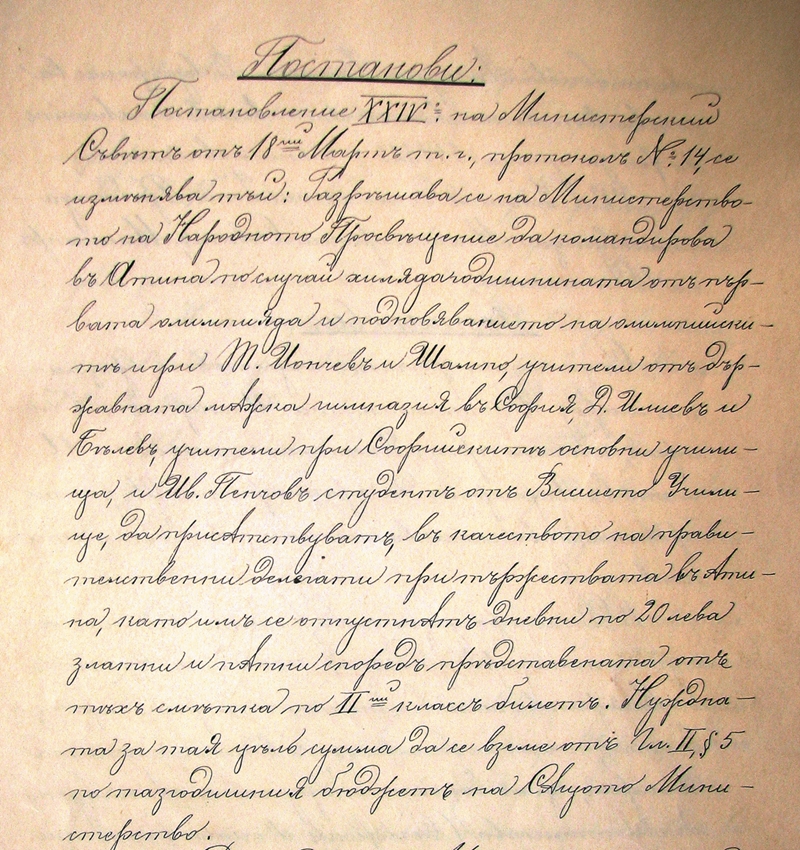 Постанови:
Постановление XXIV: на Министерский
Съвѣтъ отъ 18ий Мартъ т. г., протоколъ №: 14, се
измѣнява тъй: Разрѣшава се на Министерство-
то на Народното Просвѣщение да командирова
въ Атина по случай хилядагодишнината отъ пър-
вата олимпияда и подновяванието на олимпийски-
тѣ игри Т. Иончевъ и Шампо, учители отъ Дър-
жавната мѫжка гимназия въ София, Д. Илиевъ и
Бѣлевъ, учители при Софийскитѣ основни учили-
ща, и Ив. Пенчовъ студентъ отъ Висшето Учили-
ще, да присѫтствуватъ, въ качеството на прави-
телственни делегати при тържествата въ Ати-
на, като имъ се отпуснѫтъ дневни по 20 лева
златни и пѫтни споредъ прѣдставената отъ
тѣхъ смѣтка по IIий классъ билетъ. Нуждна-
та за тая цѣль сумма да се вземе отъ Гл. II, § 5
по тазгодишния бюджетъ на Сѫщото Мини-
стерство.